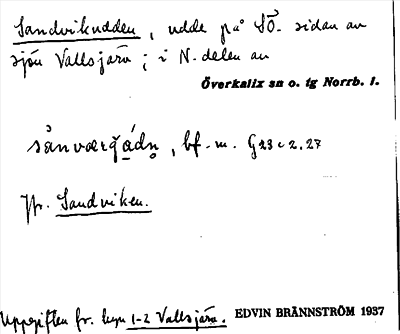 Sandvikudden, udde på SÖ. sidan av
sjön Vallsjärv; i N. delen av
Överkalix sn o. tg Norrb. l.
bf. m. G23c2.27
Jfr. Sandviken.
Uppgiften fr. hmn 1-2 Vallsjärv. EDVIN BRÄNNSTRÖM 1937